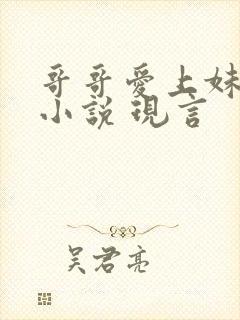 哥哥愛上妹
小說現言
吴君亮